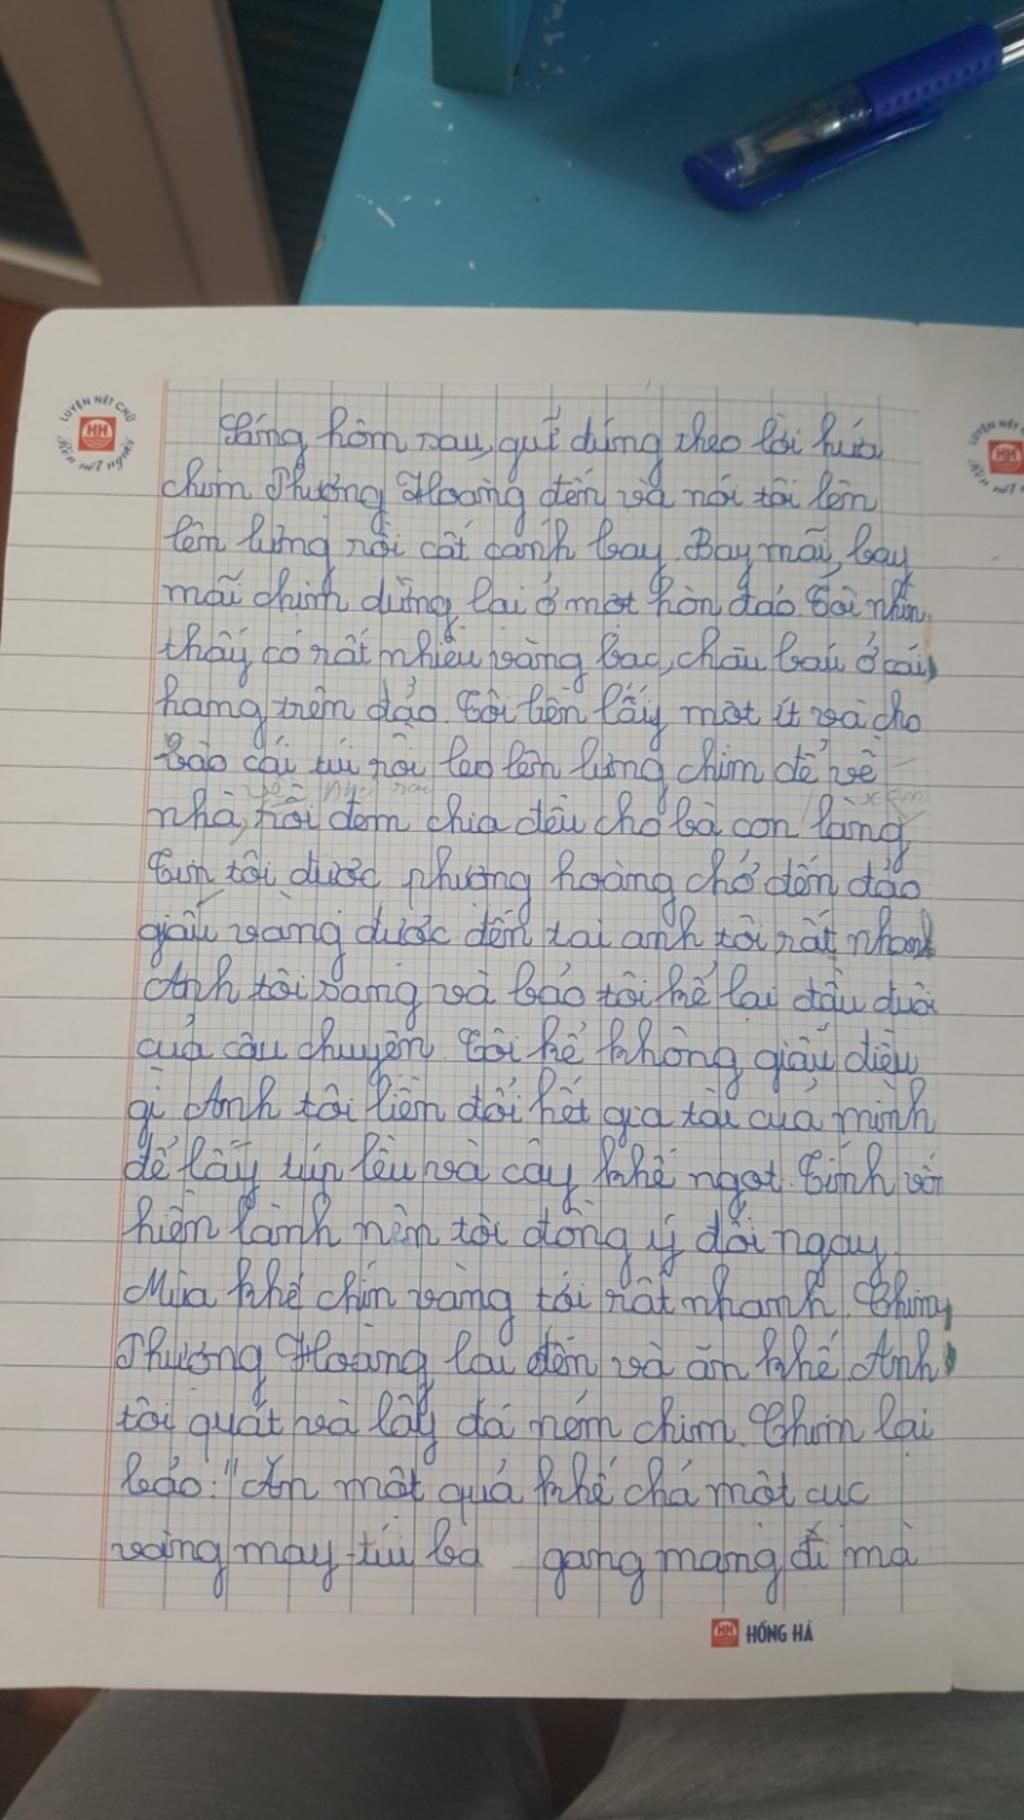 LUYỆN NÉT CHỮ
HH
Rèn nết người
LUYỆN NÉT
HH
Sáng hôm sau, quả đúng theo lời hứa
chim Phượng Hoàng đến và nói tôi lên
lên lưng rồi cất cánh bay. Bay mãi, bay
mãi chim dừng lại ở một hòn đảo. Tôi nhìn
thấy có rất nhiều vàng bạc, châu báu ở cái
hang trên đảo. Tôi liền lấy một ít và cho
vào cái túi rồi leo lên lưng chim để về
nhà, rồi đem chia đều cho bà con làng
Tin tôi được phượng hoàng chở đến đảo
giấu vàng được đến tai anh tôi rất nhanh
Anh tôi sang và bảo tôi kể lại đầu đuôi
của câu chuyện. Tôi kể không giấu điều
gì. Anh tôi liền đổi hết gia tài của mình
để lấy túp lều và cây khế ngọt. Tính vốn
hiền lành nên tôi đồng ý đổi ngay.
Mùa khế chín vàng tới rất nhanh. Chim
Phượng Hoàng lại đến và ăn khế. Anh
tôi quát và lấy đá ném chim. Chim lại
bảo: "Ăn một quả khế chả một cục
vàng may túi ba gang mang đi mà
HH HỒNG HÀ